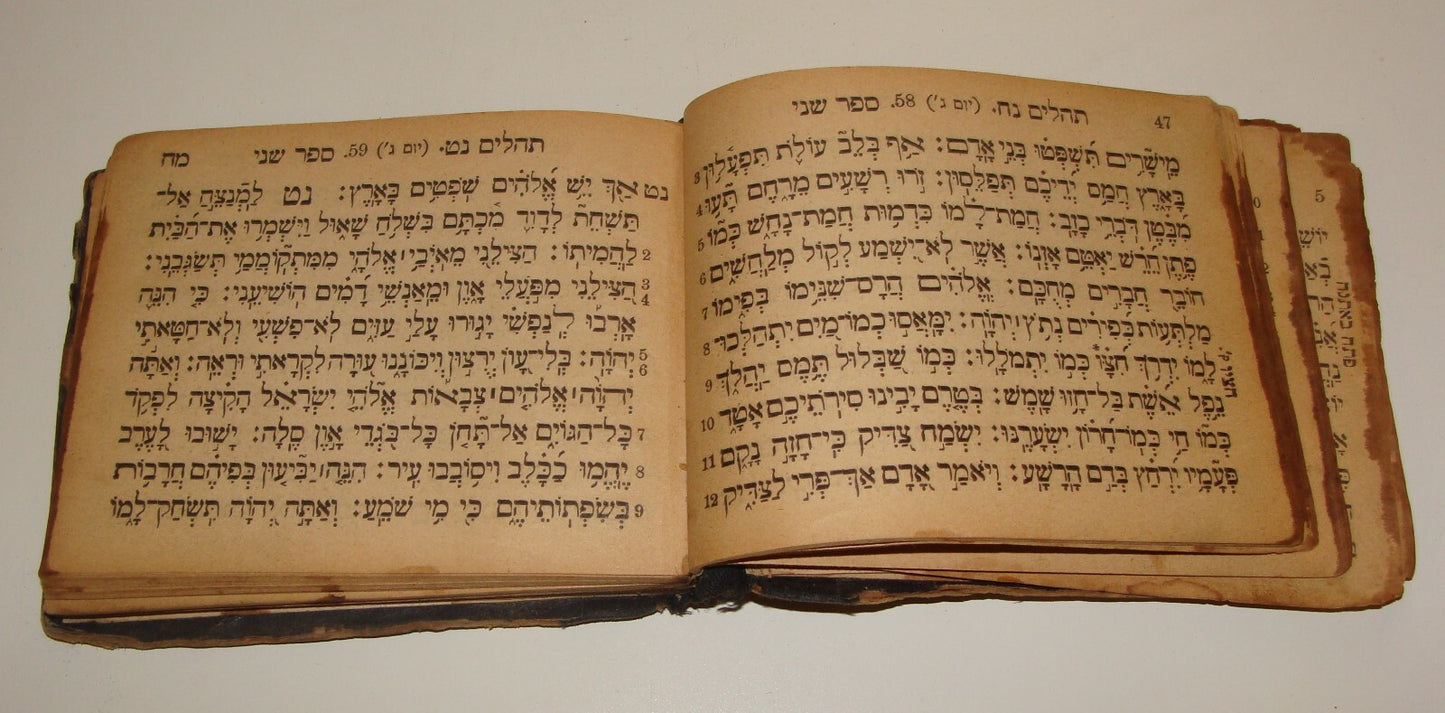 47 תהלים נח. (יום ג') 58. ספר שני
מֵישָׁרִים תִּשְׁפְּטוּ בְּנֵי אָדָם: אַף בְּלֵב עוֹלֹת תִּפְעָלוּן 3
בָּאָרֶץ חֲמַס יְדֵיכֶם תְּפַלֵּסוּן: זֹרוּ רְשָׁעִים מֵרָחֶם תָּעוּ 4
מִבֶּטֶן דֹּבְרֵי כָזָב: חֲמַת־לָמוֹ כִּדְמוּת חֲמַת־נָחָשׁ כְּמוֹ 5
פֶתֶן חֵרֵשׁ יַאְטֵם אָזְנוֹ: אֲשֶׁר לֹא־יִשְׁמַע לְקוֹל מְלַחֲשִׁים 6
חוֹבֵר חֲבָרִים מְחֻכָּם: אֱלֹהִים הֲרָס־שִׁנֵּימוֹ בְּפִימוֹ 7
מַלְתְּעוֹת כְּפִירִים נְתֹץ יְהֹוָה: יִמָּאֲסוּ כְמוֹ־מַיִם יִתְהַלְּכוּ־ 8
לָמוֹ יִדְרֹךְ חִצָּו כְּמוֹ יִתְמֹלָלוּ: כְּמוֹ שַׁבְּלוּל תֶּמֶס יַהֲלֹךְ 9
נֵפֶל אֵשֶׁת בַּל־חָזוּ שָׁמֶשׁ: בְּטֶרֶם יָבִינוּ סִּירֹתֵיכֶם אָטָד 10
כְּמוֹ חַי כְּמוֹ־חָרוֹן יִשְׂעָרֶנּוּ: יִשְׂמַח צַדִּיק כִּי־חָזָה נָקָם 11
פְּעָמָיו יִרְחַץ בְּדַם הָרָשָׁע: וְיֹאמַר אָדָם אַךְ־פְּרִי לַצַּדִּיק 12
5
פתח באתנח
תהלים נט. (יום ג') 59. ספר שני מח
נט אַךְ יֵשׁ אֱלֹהִים שֹׁפְטִים בָּאָרֶץ: נט לַמְנַצֵּחַ אַל־
תַּשְׁחֵת לְדָוִד מִכְתָּם בִּשְׁלֹחַ שָׁאוּל וַיִּשְׁמְרוּ אֶת־הַבַּיִת
2 לַהֲמִיתוֹ: הַצִּילֵנִי מֵאֹיְבַי אֱלֹהָי מִמִּתְקוֹמְמַי תְּשַׂגְּבֵנִי:
3 4 הַצִּילֵנִי מִפֹּעֲלֵי אָוֶן וּמֵאַנְשֵׁי דָמִים הוֹשִׁיעֵנִי: כִּי הִנֵּה
אָרְבוּ לְנַפְשִׁי יָגוּרוּ עָלַי עַזִּים לֹא־פִשְׁעִי וְלֹא־חַטָּאתִי
5 6 יְהֹוָה: בְּלִי־עָוֹן יְרֻצוּן וְיִכּוֹנָנוּ עוּרָה לִקְרָאתִי וּרְאֵה: וְאַתָּה
יְהֹוָה אֱלֹהִים צְבָאוֹת אֱלֹהֵי יִשְׂרָאֵל הָקִיצָה לִפְקֹד
7 כָּל־הַגּוֹיִם אַל־תָּחֹן כָּל־בֹּגְדֵי אָוֶן סֶלָה: יָשׁוּבוּ לָעֶרֶב
8 יֶהֱמוּ כַכָּלֶב וִיסוֹבְבוּ עִיר: הִנֵּה יַבִּיעוּן בְּפִיהֶם חֲרָבוֹת
9 בְּשִׂפְתוֹתֵיהֶם כִּי מִי שֹׁמֵעַ: וְאַתָּה יְהֹוָה תִּשְׂחַק־לָמוֹ